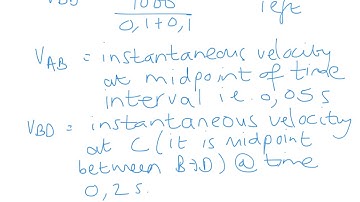 VBD 1000 left
0,1+0,1
VAB = instantaneous velocity
at midpoint of time
interval i.e. 0,05s
VBD = instantaneous velocity
at C (it is midpoint
between B→D) @ time
0,2s.